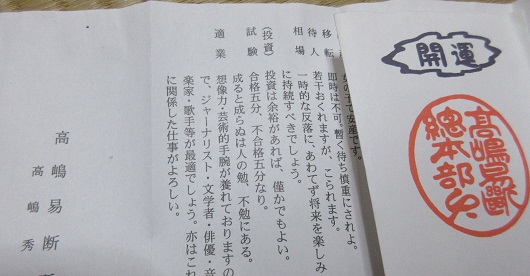 開運
高嶋易斷
總本部
女の子で安産です。
移転 即時は不可。暫く待ち慎重にされよ。
待人 若干おくれますが、こられます。
相場 一時的な反落に、あわてず将来を楽しみ
に持続すべきでしょう。
(投資) 投資は余裕があれば、僅かでもよい。
試験 合格五分、不合格五分なり。
成ると成らぬは人の勉、不勉にある。
適業 想像力・芸術的手腕が養れておりますの
で、ジャーナリスト・文学者・俳優・音
楽家・歌手等が最適でしょう。亦はこれ
に関係した仕事がよろしい。
高嶋易断
高嶋秀